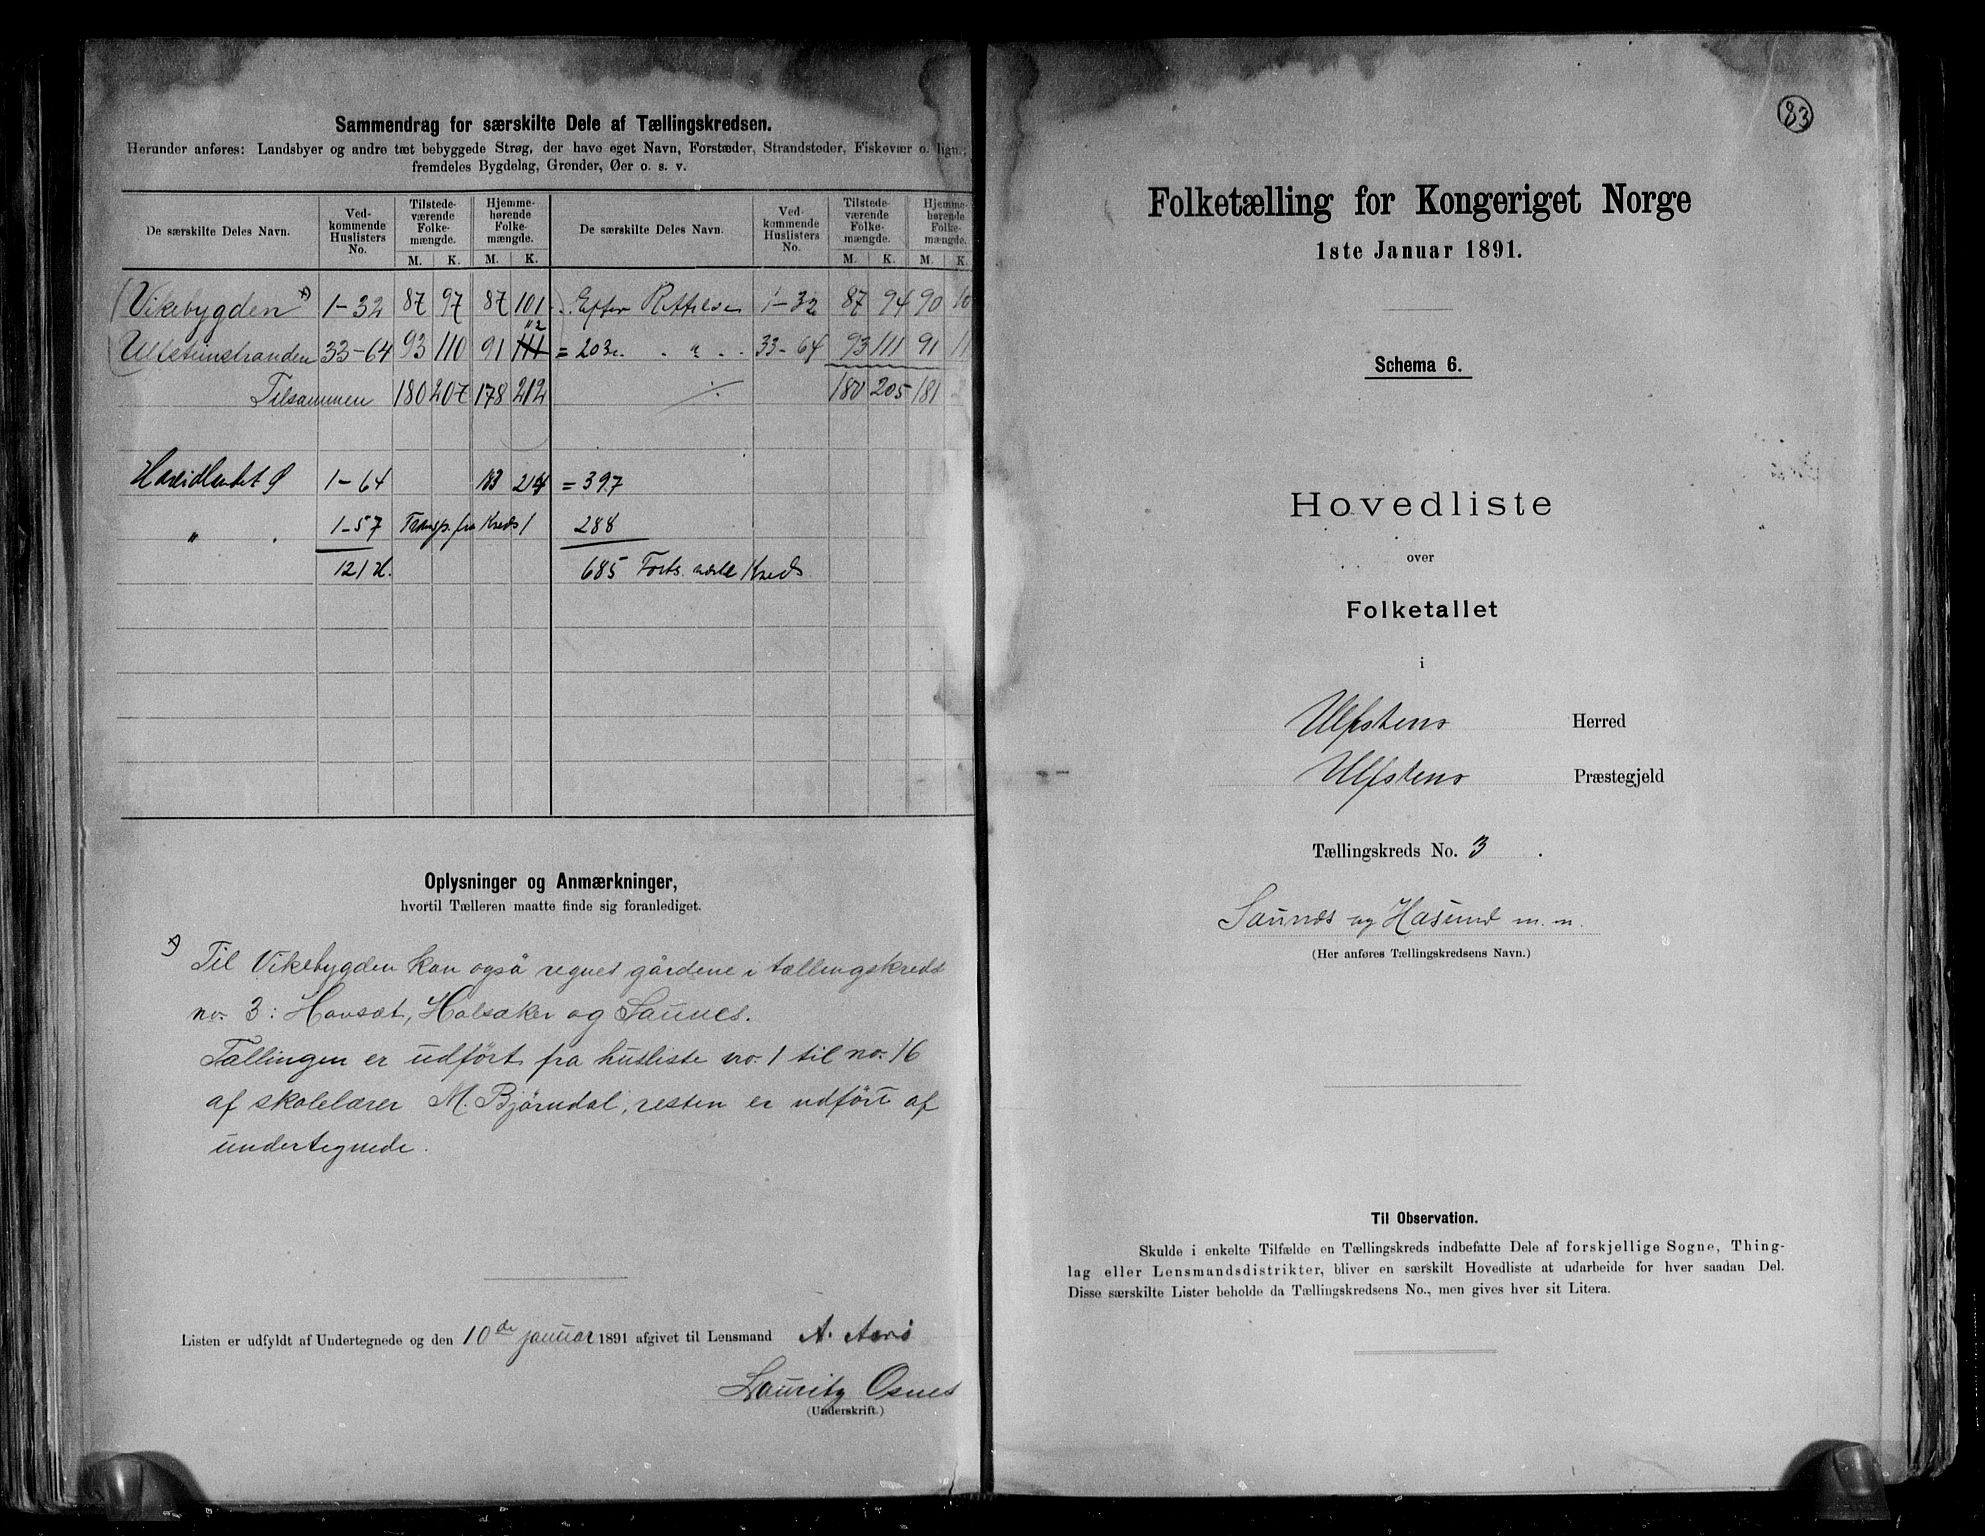 Sammendrag for særskilte Dele af Tællingskredsen.
Herunder anføres: Landsbyer og andre tæt bebyggede Strøg, der have eget Navn, Forstæder, Strandsteder, Fiskevær o. lign.;
fremdeles Bygdelag, Grender, Øer o. s. v.
De særskilte Deles Navn. Ved-kommende Huslisters No. Tilstede-værende Folke-mængde. Hjemme-hørende Folke-mængde. De særskilte Deles Navn. Ved-kommende Huslisters No. Tilstede-værende Folke-mængde. Hjemme-hørende Folke-mængde.
M. K. M. K. M. K. M. K.
Vikebygden x) 1-32 87 97 87 101 Efter Rettelse 1-32 87 94 90 10
112
Ulfsteinstranden 33-64 93 110 91 111 = 203 " 33-64 93 111 91 11
Tilsammen 180 207 178 212 180 205 181
Hareidlandet Ø 1-64 183 214 = 397
" 1-57 Transp. fra Kreds 1 288
121 H. 685 Forts. næste Kreds.
Oplysninger og Anmærkninger,
hvortil Tælleren maatte finde sig foranlediget.
x) Til Vikebygden kan også regnes gårdene i tællingskreds
no. 3: Hovsæt, Holsæker og Saunes.
Tællingen er udført fra husliste no. 1 til no. 16
af skolelærer M. Bjørndal, resten er udført af
undertegnede.
Listen er udfyldt af Undertegnede og den 10de januar 1891 afgivet til Lensmand A. Aarø
Lauritz Osnes
(Underskrift.)
83
Folketælling for Kongeriget Norge
1ste Januar 1891.
Schema 6.
Hovedliste
over
Folketallet
i
Ulfstens Herred
Ulfstens Præstegjeld
Tællingskreds No. 3.
Saunes og Hasund m. m.
(Her anføres Tællingskredsens Navn.)
Til Observation.
Skulde i enkelte Tilfælde en Tællingskreds indbefatte Dele af forskjellige Sogne, Thing-
lag eller Lensmandsdistrikter, bliver en særskilt Hovedliste at udarbeide for hver saadan Del.
Disse særskilte Lister beholde da Tællingskredsens No., men gives hver sit Litera.